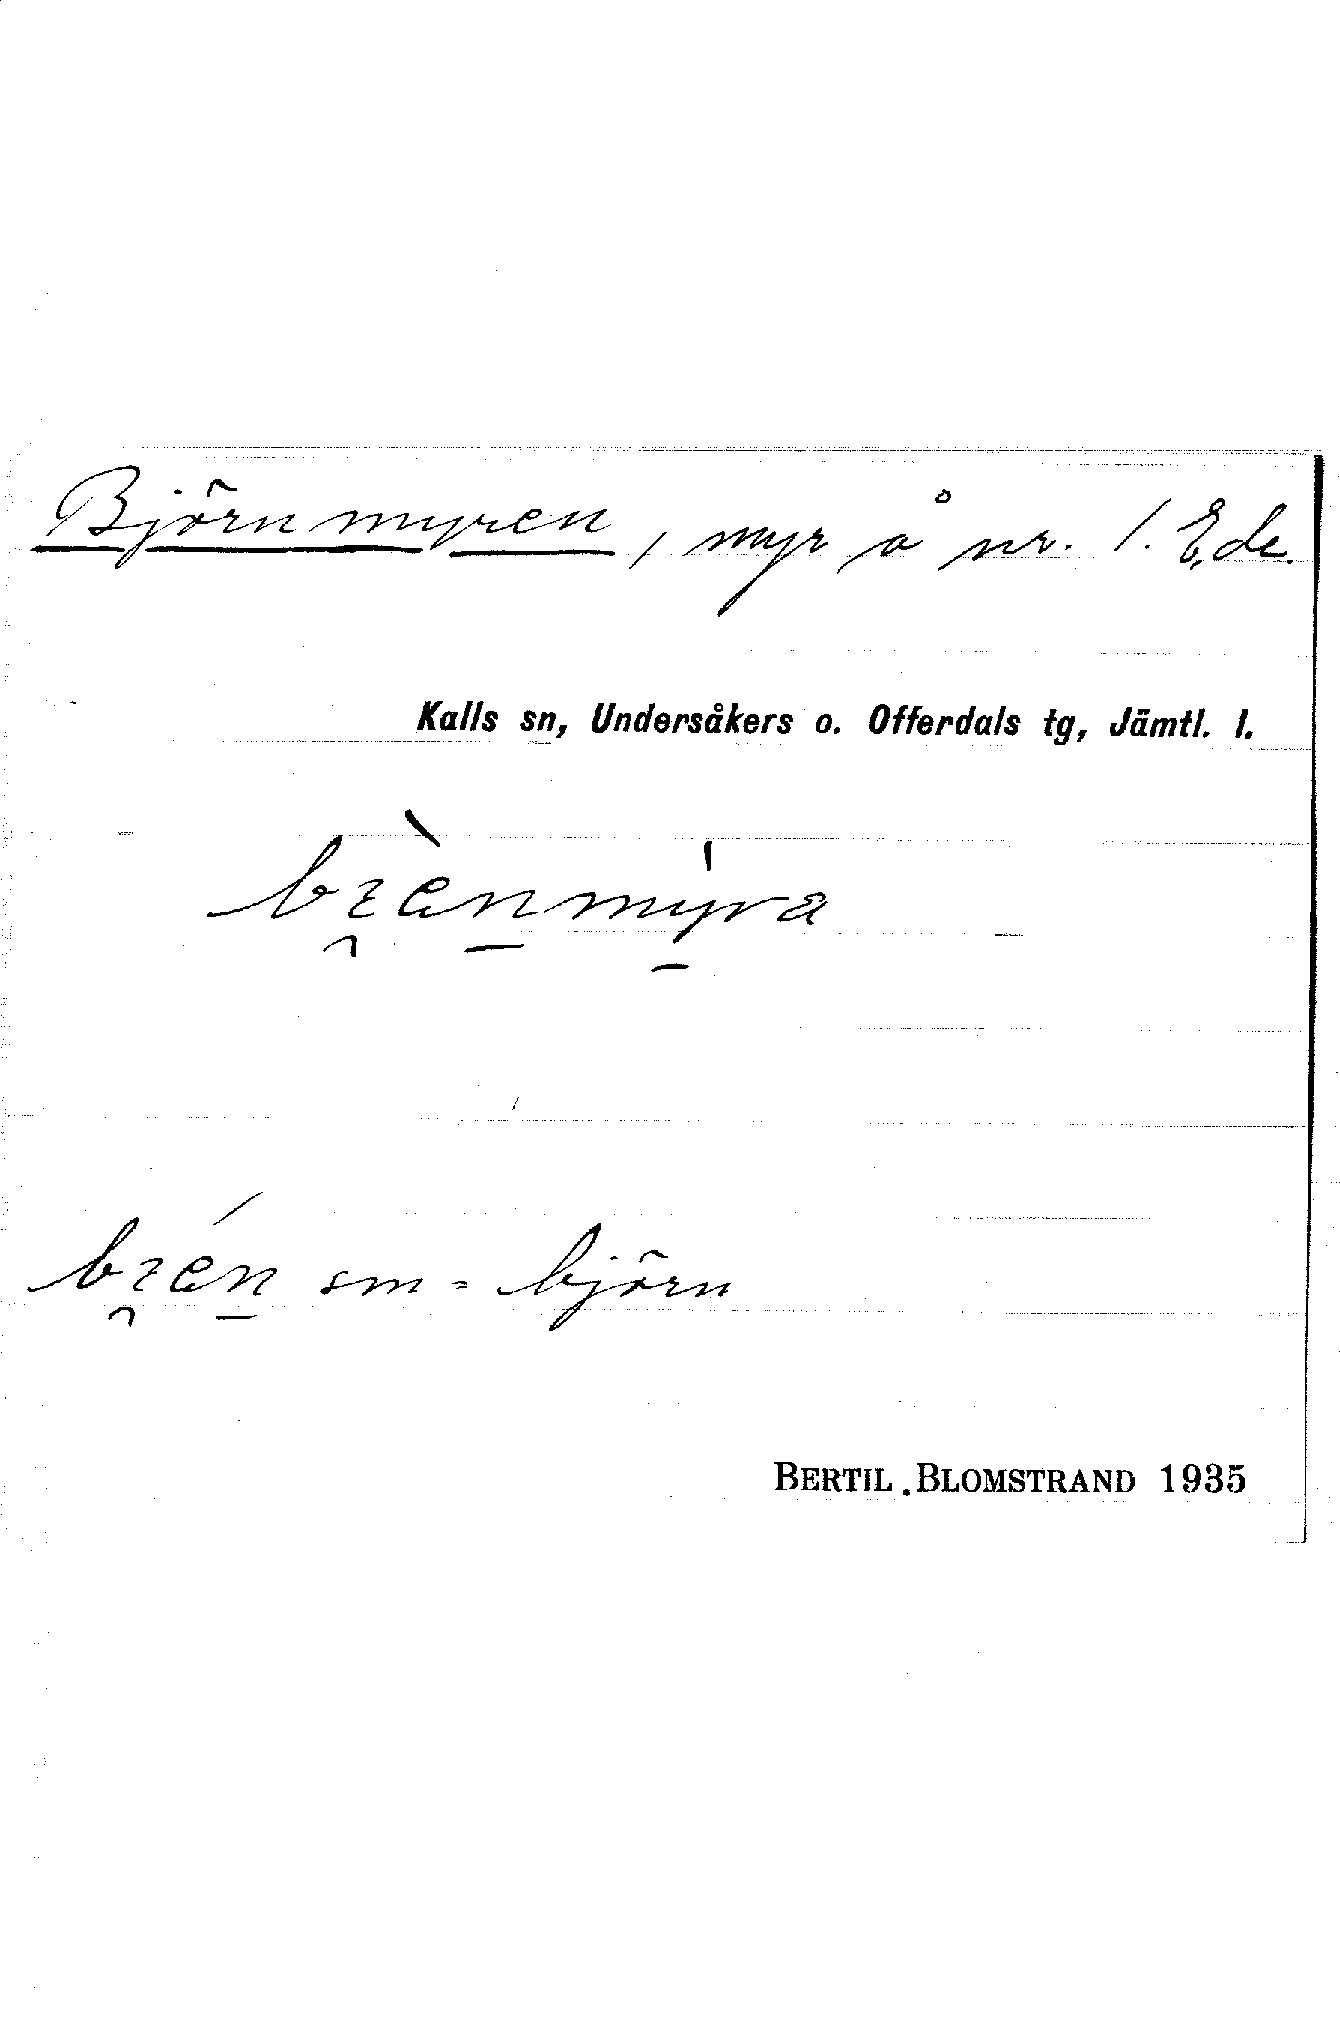 Björnmyren, myr å nr. 1. Ede.
Kalls sn, Undersåkers o. Offerdals tg, Jämtl. l.
bzènmyra
bzén sm = björn
BERTIL BLOMSTRAND 1935